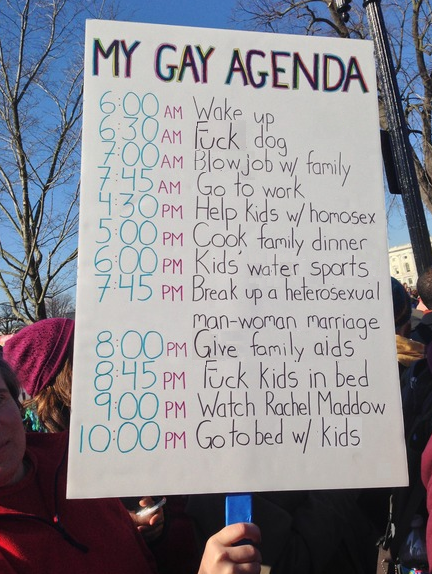 MY GAY AGENDA
6:00 AM Wake up
6:30 AM Fuck dog
7:00 AM Blowjob w/ family
7:45 AM Go to work
4:30 PM Help kids w/ homosex
5:00 PM Cook family dinner
6:00 PM Kids' water sports
7:45 PM Break up a heterosexual
man-woman marriage
8:00 PM Give family aids
8:45 PM Fuck kids in bed
9:00 PM Watch Rachel Maddow
10:00 PM Go to bed w/ kids